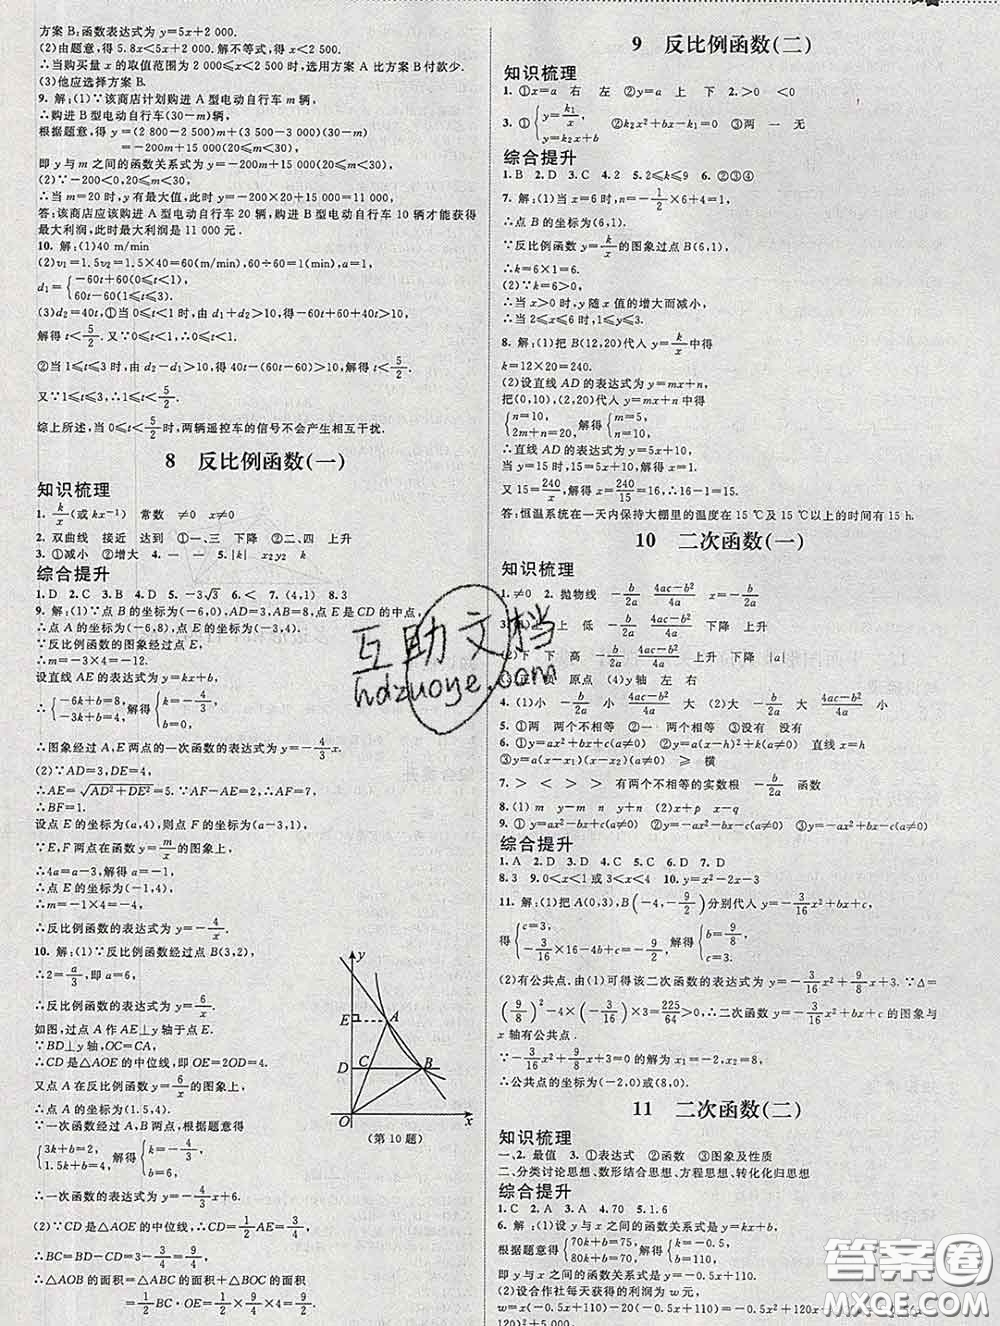 方案 B:函数表达式为 y=5x+2 000.
(2)由题意,得 5.8x<5x+2 000. 解不等式,得 x<2 500.
∴当购买量 x 的取值范围为 2 000≤x<2 500 时,选用方案 A 比方案 B 付款少.
(3)他应选择方案 B.
9. 解:(1)∵该商店计划购进 A 型电动自行车 m 辆,
∴购进 B 型电动自行车(30-m)辆,
根据题意,得 y=(2 800-2 500)m+(3 500-3 000)(30-m)
=-200m+15 000(20≤m<30),
即 y 与 m 之间的函数关系式为 y=-200m+15 000(20≤m<30).
(2)∵-200<0,20≤m<30,
∴当 m=20 时,y 有最大值,此时 y=-200×20+15 000=11 000.
答:该商店应该购进 A 型电动自行车 20 辆,购进 B 型电动自行车 10 辆才能获得
最大利润,此时最大利润是 11 000 元.
10. 解:(1)40 m/min
(2)v1=1.5v2=1.5×40=60(m/min),60÷60=1(min),a=1,
d1={-60t+60(0≤t<1),
60t-60(1≤t≤3).
(3)d2=40t,①当 0≤t<1 时,由 d1+d2>10,得-60t+60+40t>10,
解得 t<5/2. 又∵0≤t<1,∴0≤t<1.
②当 1≤t≤3 时,由 d2-d1>10,得 40t-(60t-60)>10,解得 t<5/2.
又∵1≤t≤3,∴1≤t<5/2.
综上所述,当 0≤t<5/2时,两辆遥控车的信号不会产生相互干扰.
8 反比例函数(一)
知识梳理
1. k/x(或 kx⁻¹) 常数 ≠0 ≠0
2. 双曲线 接近 达到 ①一、三 下降 ②二、四 上升
3. ①减小 ②增大 4. — — 5.|k| x2y2 k
综合提升
1. D 2. C 3. A 4. D 5. -3√3 6. < 7. (4,1) 8. 3
9. 解:(1)∵点 B 的坐标为(-6,0),AD=3,AB=8,点 E 是 CD 的中点,
∴点 A 的坐标为(-6,8),点 E 的坐标为(-3,4).
∵反比例函数的图象经过点 E,
∴m=-3×4=-12.
设直线 AE 的表达式为 y=kx+b,
∴{-6k+b=8, -3k+b=4, 解得{k=-4/3, b=0,
∴图象经过 A,E 两点的一次函数的表达式为 y=-4/3x.
(2)∵AD=3,DE=4,
∴AE=√(AD²+DE²)=5. ∵AF-AE=2,∴AF=7,
∴BF=1.
设点 E 的坐标为(a,4),则点 F 的坐标为(a-3,1),
∵E,F 两点在函数 y=m/x的图象上,
∴4a=a-3,解得 a=-1,
∴点 E 的坐标为(-1,4),
∴m=-1×4=-4,
∴反比例函数的表达式为 y=-4/x.
10. 解:(1)∵反比例函数经过点 B(3,2),
∴2=a/3,即 a=6,
∴反比例函数的表达式为 y=6/x.
如图,过点 A 作 AE⊥y 轴于点 E.
∵BD⊥y 轴,OC=CA,
∴CD 是△AOE 的中位线,即 OE=2OD=4.
又∵点 A 在反比例函数 y=6/x的图象上,
∴点 A 的坐标为(1.5,4).
∵一次函数经过 A,B 两点,根据题意得
{3k+b=2, 1.5k+b=4, 解得{k=-4/3, b=6,
∴一次函数的表达式为 y=-4/3x+6.
(2)∵CD 是△AOE 的中位线,∴CD=1/2AE=3/4,
∴BC=BD-CD=3-3/4=9/4,
∴△AOB 的面积=△AOC 的面积+△BOC 的面积
=1/2BC·OE=1/2×9/4×4=9/2.
y
E
A
D
C
B
O
x
(第 10 题)
9 反比例函数(二)
知识梳理
1. ①x=a 右 左 ②y=a 上 下 2. >0 <0
3. ①{y=k1/x, y=k2x+b ②k2x²+bx-k1=0 ③两 一 无
综合提升
1. B 2. D 3. C 4. 2 5. 2≤k≤9 6. ②③④
7. 解:(1)当 x=6 时,n=-1/2×6+4=1,
∴点 B 的坐标为(6,1).
∵反比例函数 y=k/x的图象过点 B(6,1),
∴k=6×1=6.
(2)∵k=6>0,
∴当 x>0 时,y 随 x 值的增大而减小,
∴当 2≤x≤6 时,1≤y≤3.
8. 解:(1)把 B(12,20)代入 y=k/x中得
k=12×20=240.
(2)设直线 AD 的表达式为 y=mx+n,
把(0,10),(2,20)代入 y=mx+n 中得
{n=10, 2m+n=20, 解得{m=5, n=10,
∴直线 AD 的表达式为 y=5x+10,
当 y=15 时,15=5x+10,解得 x=1.
又 15=240/x,解得 x=240/15=16,∴16-1=15.
答:恒温系统在一天内保持大棚里的温度在 15 ℃及 15 ℃以上的时间有 15 h.
10 二次函数(一)
知识梳理
1. ≠0 2. 抛物线 -b/2a (4ac-b²)/4a x=-b/2a -b/2a (4ac-b²)/4a
上 低 -b/2a (4ac-b²)/4a 下降 上升
下 下 高 -b/2a (4ac-b²)/4a 上升 下降 |a|
原点 (4)y 轴 左 右
4. (1)小 -b/2a 小 (4ac-b²)/4a 大 (2)大 -b/2a 大 (4ac-b²)/4a 小
5. ①两 两个不相等 ②一 两个相等 ③没有 没有
6. ①y=ax²+bx+c(a≠0) ②y=a(x-h)²+k(a≠0) 直线 x=h
③y=a(x-x1)(x-x2)(a≠0) ≥ 横
7. > < > > 有两个不相等的实数根 -b/2a 函数
8. (1) m y-m n y+n (2)x+p x-q
9. ①y=-ax²-bx-c(a≠0) ②y=ax²-bx+c(a≠0) ③y=-ax²+bx-c(a≠0)
综合提升
1. A 2. D 3. D 4. C 5. D 6. D 7. D
8. 3 9. 0<x<1 或 3<x<4 10. y=x²-2x-3
11. 解:(1)把 A(0,3),B(-4,-9/2)分别代入 y=-3/16x²+bx+c,
得{c=3, -3/16×16-4b+c=-9/2, 解得{b=9/8, c=3.
(2)有公共点. 由(1)可得该二次函数的表达式为 y=-3/16x²+9/8x+3. ∵Δ=
(9/8)²-4×(-3/16)×3=225/64>0,∴二次函数 y=-3/16x²+bx+c 的图象与
x 轴有公共点.
∵-3/16x²+9/8x+3=0 的解为 x1=-2,x2=8,
∴公共点的坐标为(-2,0)或(8,0).
11 二次函数(二)
知识梳理
一、2. 最值 3. ①表达式 ②函数 ③图象及性质
二、分类讨论思想、数形结合思想、方程思想、转化化归思想
综合提升
1. C 2. A 3. A 4. 70 5. 1.6
6. 解:(1)设 y 与 x 之间的函数关系式是 y=kx+b,
根据题意得{70k+b=75, 80k+b=70, 解得
即 y 与 x 之间的函数关系式是 y=-0.5x+110.
(2)设合作社每天获得的利润为 w 元,
w=x(-0.5x+110)-20(-0.5x+110)=-0.5x²+120x
120)²+5 000.
互助文档
hdzuoye.com
答案圈
MXQE.COM